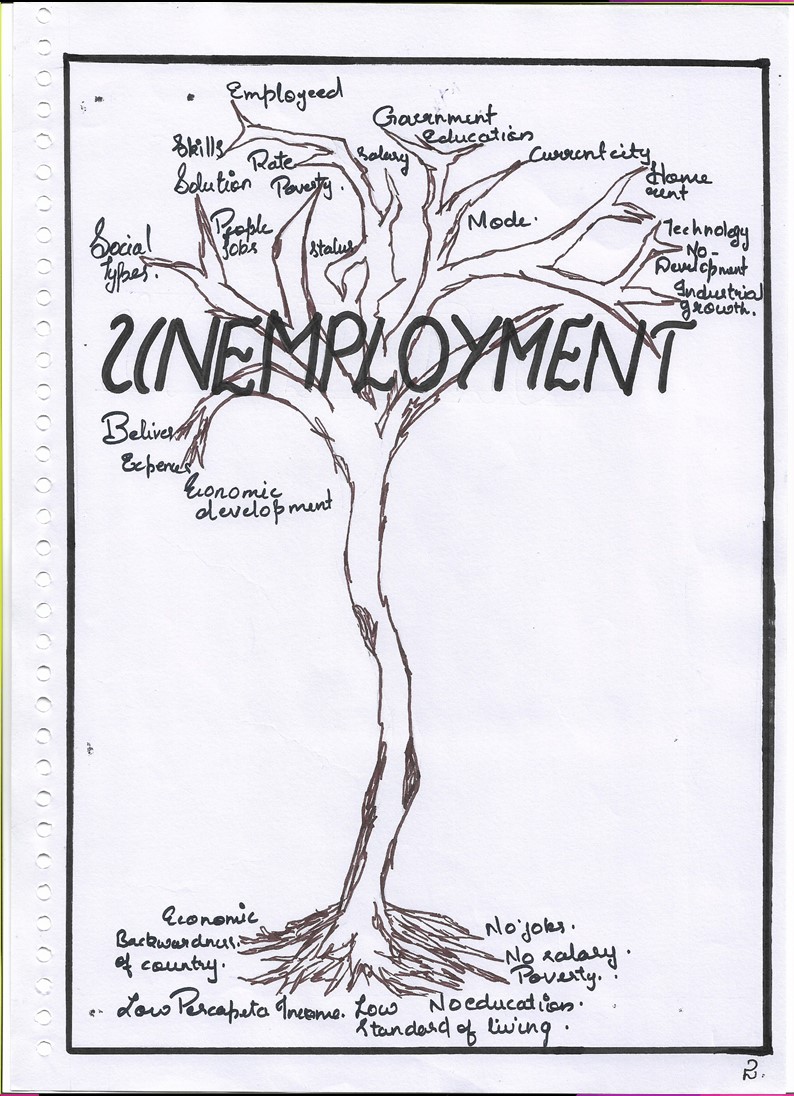 Employeed
Government
Education
Skills
Rate
Salary
Current city
Solution
Poverty.
Home
rent
People
Jobs
Status
Mode.
Social
Types.
Technology
No-
Development
Industrial
growth.
UNEMPLOYMENT
Belives
Expences
Economic
development
Economic
Backwardness.
of country.
No jobs.
No salary.
Poverty.
Low Percapeta Income. Low
No education.
Standard of living.
2.